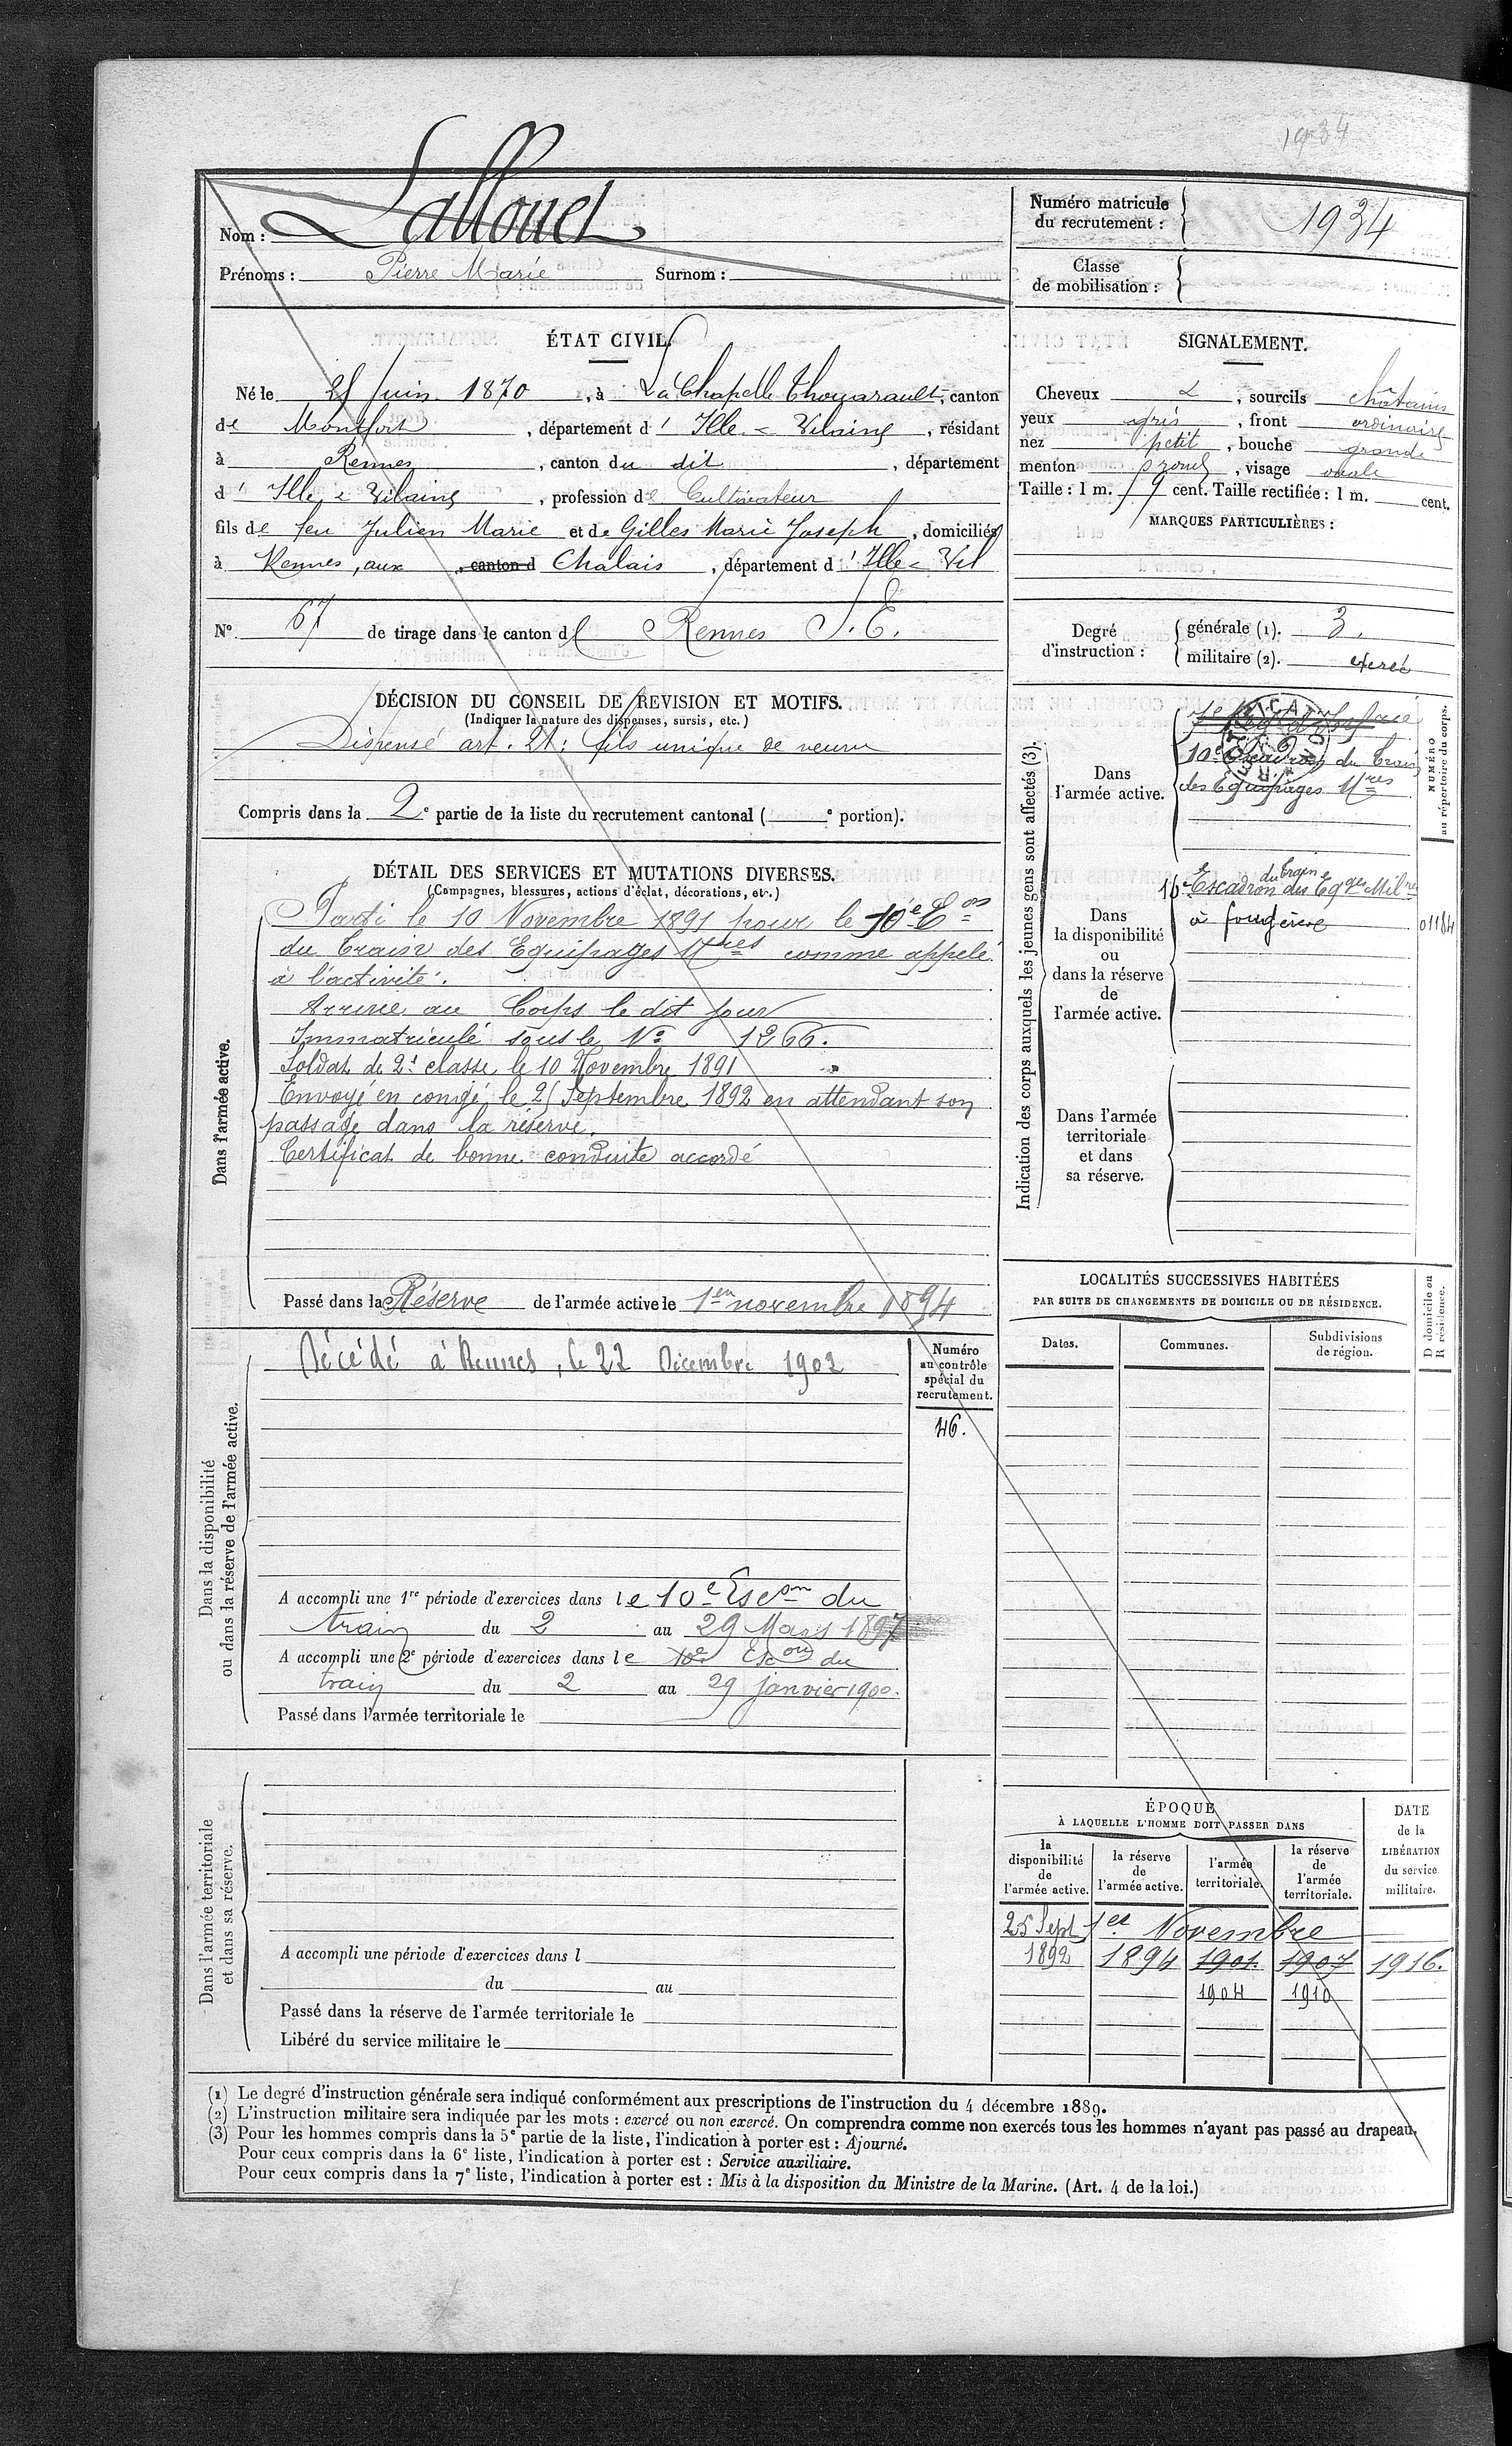 1934
Nom : Lallouet
Prénoms : Pierre Marie Surnom :
Numéro matricule du recrutement : 1934
Classe de mobilisation :
ÉTAT CIVIL.
Né le juin 1870, à La Chapelle Thouarault, canton
de Montfort, département d' Ille & Vilaine, résidant
à Rennes, canton du dit, département
d' Ille & Vilaine, profession de Cultivateur
fils de feu Julien Marie et de Gilles Marie Joseph, domiciliés
à Rennes, aux canton d Chalais, département d' Ille & Vil
N° 67 de tirage dans le canton de Rennes S. E.
SIGNALEMENT.
Cheveux &, sourcils châtains
yeux gris, front ordinaire
nez petit, bouche grande
menton rond, visage ovale
Taille : 1 m. cent. Taille rectifiée : 1 m. cent.
MARQUES PARTICULIÈRES :
Degré d'instruction :
générale (1). 3.
militaire (2). exercé
DÉCISION DU CONSEIL DE REVISION ET MOTIFS.
(Indiquer la nature des dispenses, sursis, etc.)
Dispensé art. 21 : fils unique de veuve
Compris dans la 2e partie de la liste du recrutement cantonal ( e portion).
DÉTAIL DES SERVICES ET MUTATIONS DIVERSES.
(Campagnes, blessures, actions d'éclat, décorations, etc.)
Dans l'armée active.
Parti le 10 Novembre 1891 pour le 10e Eon
du Train des Equipages Mres comme appelé
à l'activité.
Arrivé au Corps le dit jour
Immatriculé sous le No 1266.
Soldat de 2e classe le 10 Novembre 1891
Envoyé en congé le 25 Septembre 1892 en attendant son
passage dans la réserve.
Certificat de bonne conduite accordé
Passé dans la Réserve de l'armée active le 1er novembre 1894
Indication des corps auxquels les jeunes gens sont affectés (3).
NUMÉRO au répertoire du corps.
Dans l'armée active.
RECTIFICATION
10e Escadron du Train
des Equipages Mres
Dans la disponibilité ou dans la réserve de l'armée active.
du train
10e Escadron des Eqges Milres
à fougères
01184
Dans l'armée territoriale et dans sa réserve.
Dans la disponibilité ou dans la réserve de l'armée active.
Décédé à Rennes, le 22 Décembre 1902
Numéro au contrôle spécial du recrutement.
46.
A accompli une 1re période d'exercices dans le 10e Escon du
train du 2 au 29 Mars 1897
A accompli une 2e période d'exercices dans le 10e Escon du
train du 2 au 29 janvier 1900.
Passé dans l'armée territoriale le
LOCALITÉS SUCCESSIVES HABITÉES
PAR SUITE DE CHANGEMENTS DE DOMICILE OU DE RÉSIDENCE.
D domicile ou R résidence.
Dates. Communes. Subdivisions de région.
Dans l'armée territoriale et dans sa réserve.
A accompli une période d'exercices dans l
du au
Passé dans la réserve de l'armée territoriale le
Libéré du service militaire le
ÉPOQUE
À LAQUELLE L'HOMME DOIT PASSER DANS
DATE de la LIBÉRATION du service militaire.
la disponibilité de l'armée active. la réserve de l'armée active. l'armée territoriale. la réserve de l'armée territoriale.
25 Sept 1er Novembre
1892 1894 1901. 1907 1916.
1904 1910
(1) Le degré d'instruction générale sera indiqué conformément aux prescriptions de l'instruction du 4 décembre 1889.
(2) L'instruction militaire sera indiquée par les mots : exercé ou non exercé. On comprendra comme non exercés tous les hommes n'ayant pas passé au drapeau.
(3) Pour les hommes compris dans la 5e partie de la liste, l'indication à porter est : Ajourné.
Pour ceux compris dans la 6e liste, l'indication à porter est : Service auxiliaire.
Pour ceux compris dans la 7e liste, l'indication à porter est : Mis à la disposition du Ministre de la Marine. (Art. 4 de la loi.)